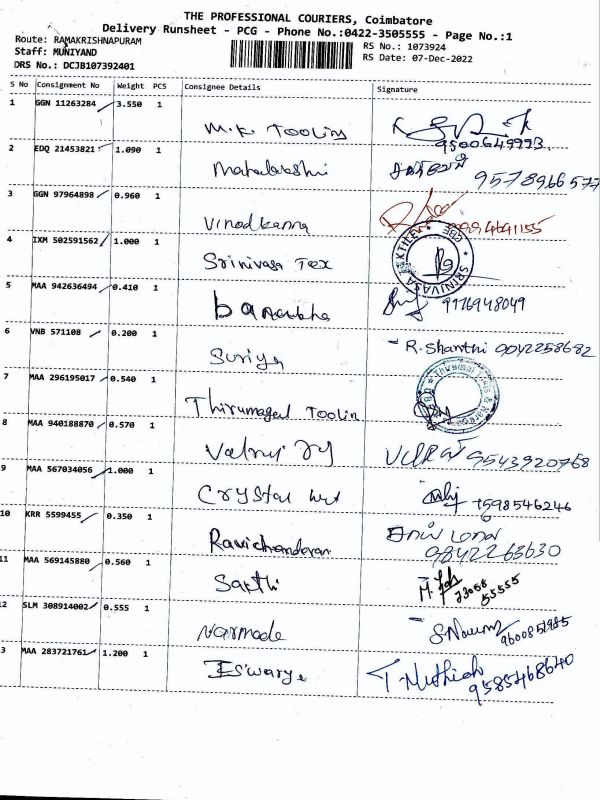 THE PROFESSIONAL COURIERS, Coimbatore
Delivery Runsheet - PCG - Phone No.:0422-3505555 - Page No.:1
Route: RAMAKRISHNAPURAM
RS No.: 1073924
Staff: MUNIYAND
RS Date: 07-Dec-2022
DRS No.: DCJB107392401
S No Consignment No Weight PCS Consignee Details Signature
1 GGN 11263284 3.550 1 M.K Tooling
9500649993
2 EDQ 21453821 1.090 1 Mahalakshmi 9578966577
3 GGN 97964898 0.960 1 Vinodkanna
4 IXM 502591562 1.000 1 Srinivasa Tex
SRINIVASA
CBE
5 MAA 942636494 0.410 1 9176948049
6 VNB 571108 0.200 1 Suriya R. Shanthi 9042258682
7 MAA 296195017 0.540 1 Thirumagal Toolin
8 MAA 940188870 0.570 1 9543920768
9 MAA 567034056 1.000 1 Crystal
7598546246
10 KRR 5599455 0.350 1 Ravichandran
9842263630
11 MAA 569145880 0.560 1 Sakthi
55555
12 SLM 308914002 0.555 1 Narmada
9600851985
3 MAA 283721761 1.200 1 Eswary T. Muthiah
9585468640